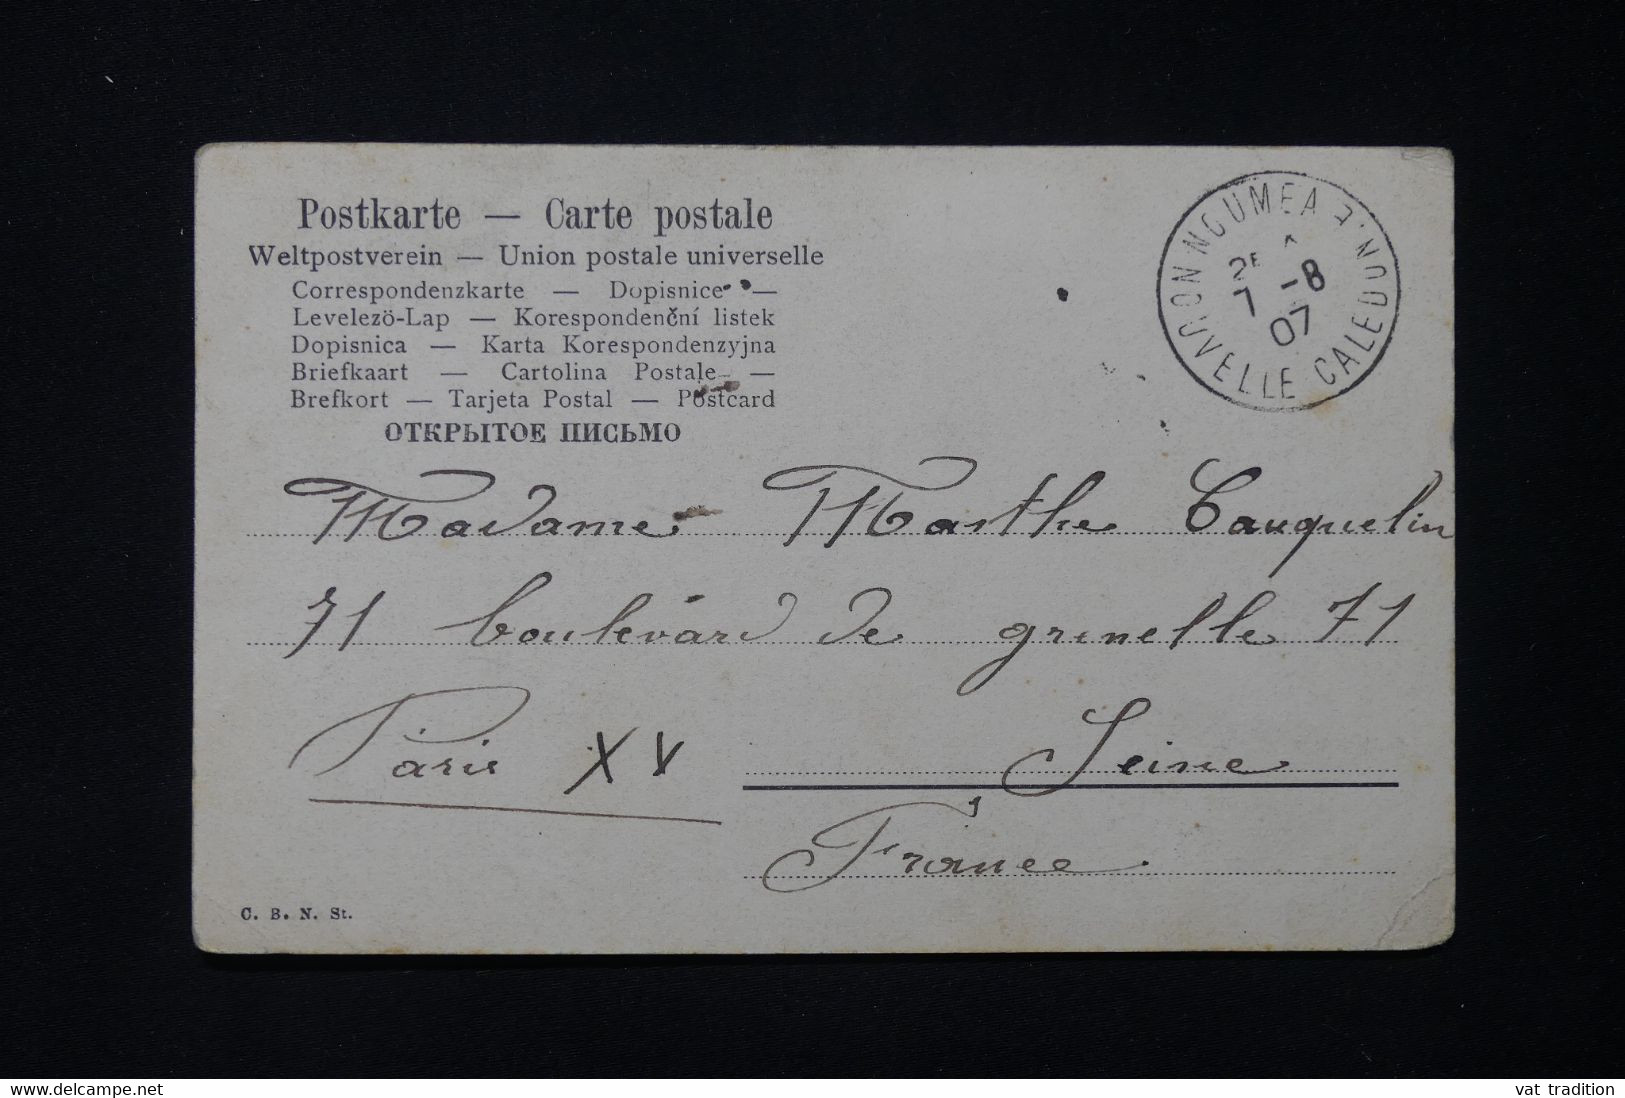 Postkarte — Carte postale
Weltpostverein — Union postale universelle
Correspondenzkarte — Dopisnice —
Levelezö-Lap — Korespondenční listek
Dopisnica — Karta Korespondenzyjna
Briefkaart — Cartolina Postale —
Brefkort — Tarjeta Postal — Postcard
ОТКРЫТОЕ ПИСЬМО
NOUMEA
NOUVELLE CALEDONIE
2E
7 -8
07
Madame Marthe Cauquelin
71 boulevard de grenelle 71
Paris XV
Seine
France
C. B. N. St.
www.delcampe.net
vat tradition